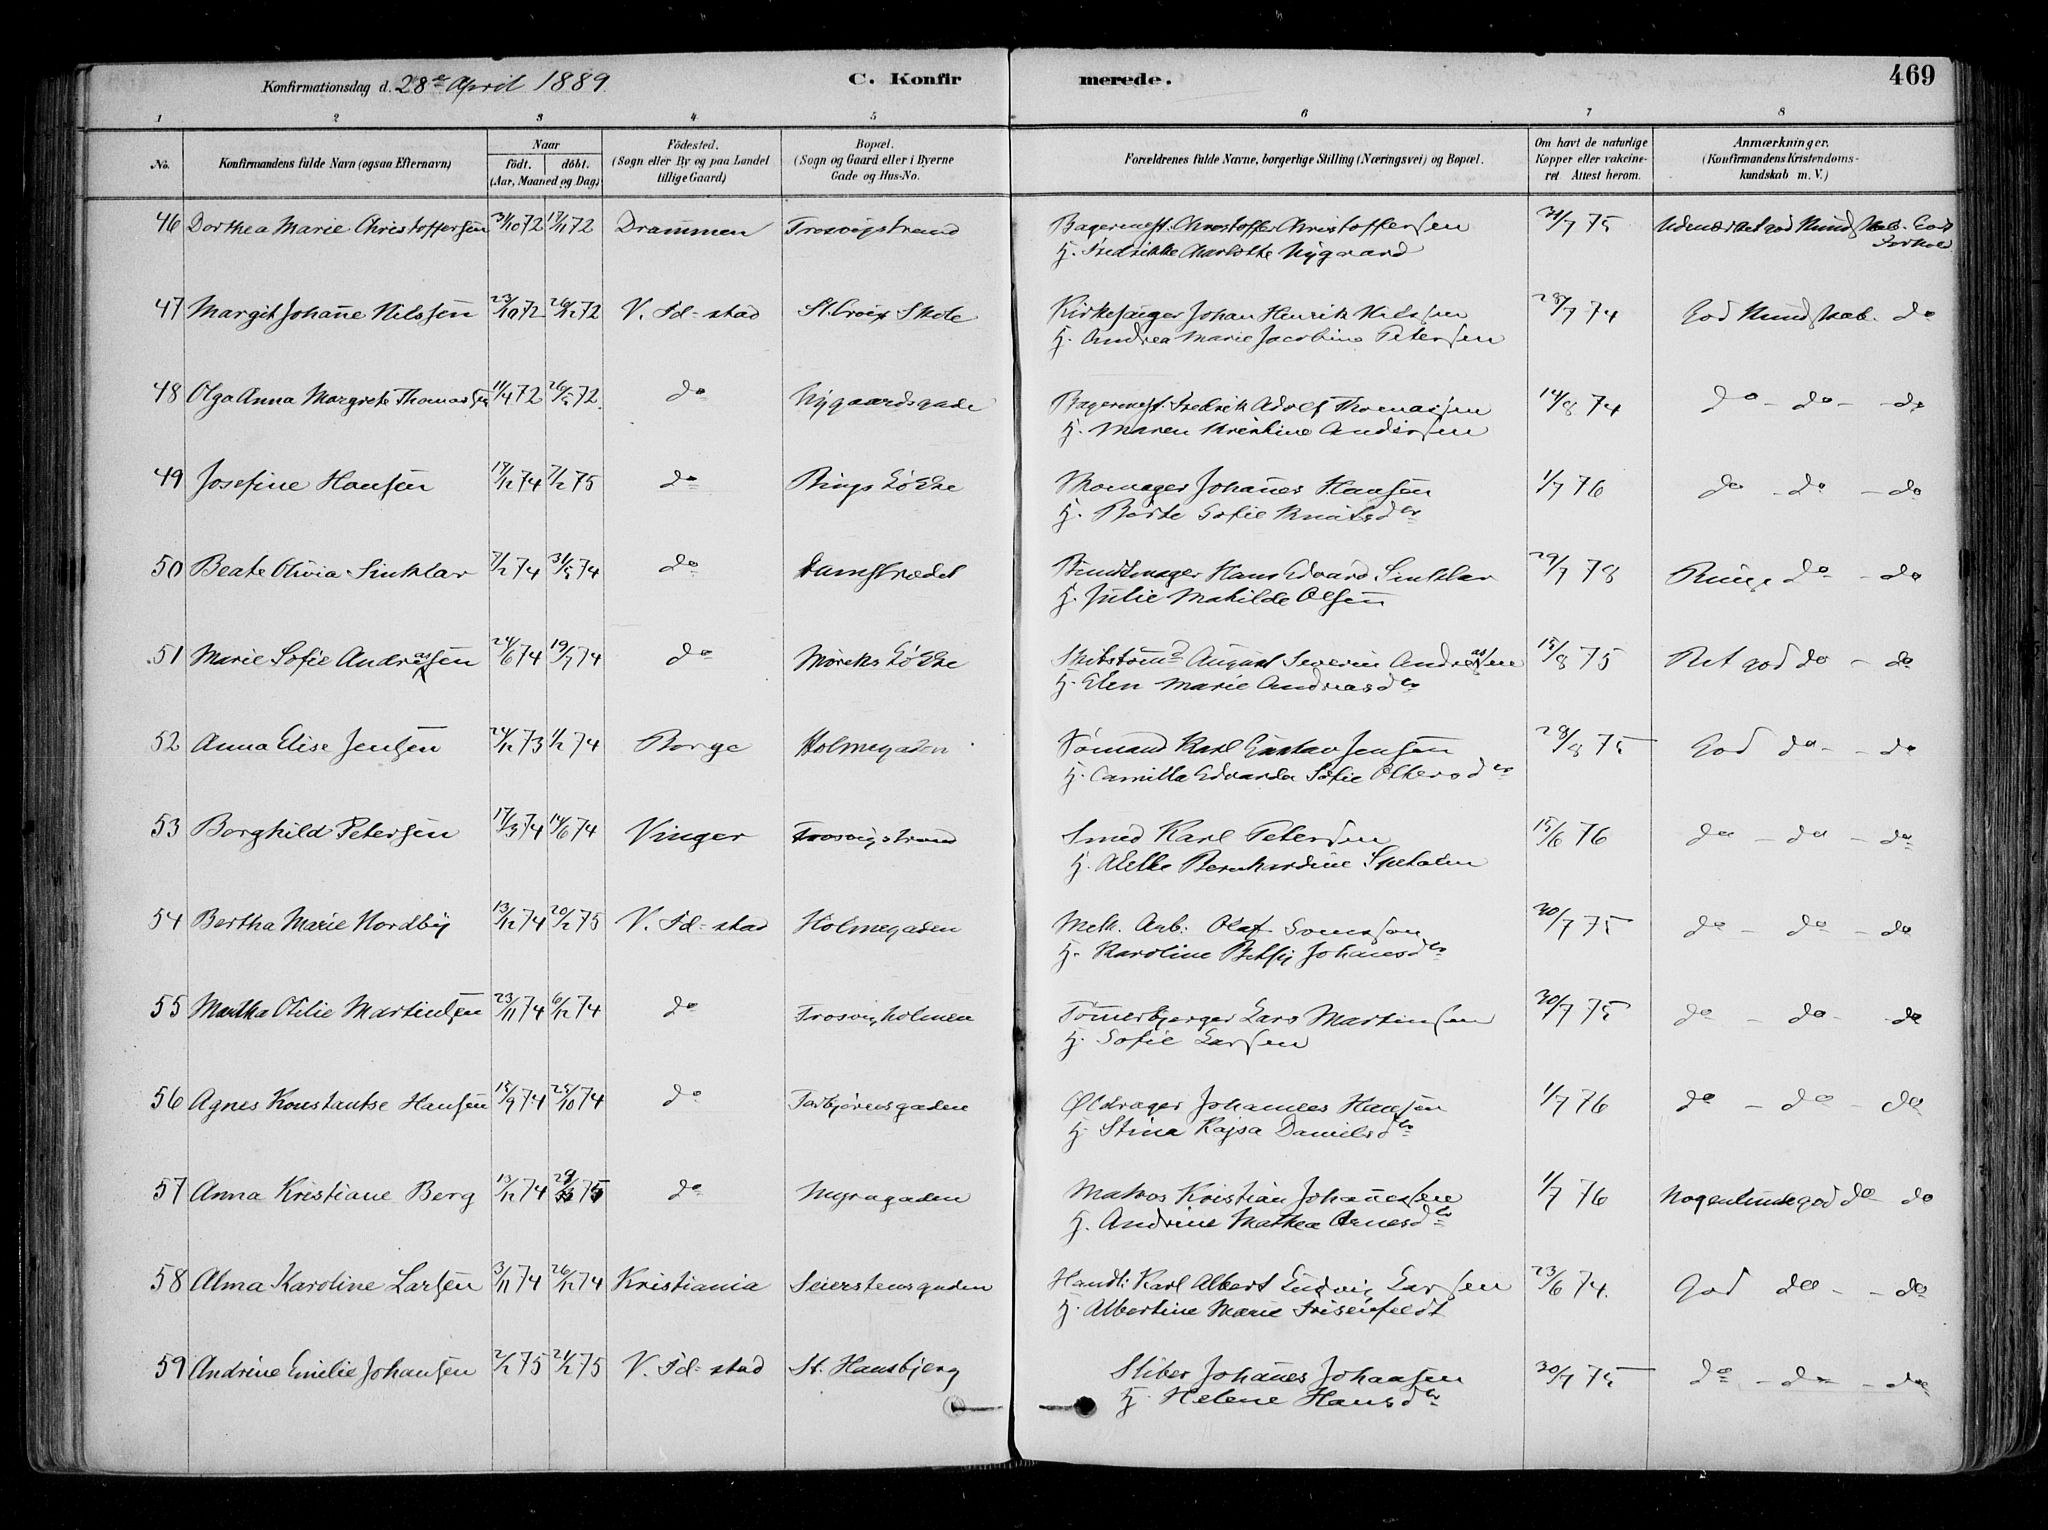 Konfirmationsdag d. 28de April 1889. C. Konfirmerede. 469
1 2 3 4 5 6 7 8
No. Konfirmandens fulde Navn (ogsaa Efternavn) Naar født. døbt. (Aar, Maaned og Dag) Fødested. (Sogn eller By og paa Landet tillige Gaard) Bopæl. (Sogn og Gaard eller i Byerne Gade og Hus-No. Forældrenes fulde Navne, borgerlige Stilling (Næringsvei) og Bopæl. Om havt de naturlige Kopper eller vakcineret Attest herom. Anmærkninger. (Konfirmandens Kristendomskundskab m. V.)
46 Dorthea Marie Christoffersen 31/10 72 17/11 72 Drammen Trosvigstrand Bagermest. Christoffer Christoffersen 31/7 75 Udmærket god Kundskab. Godt Forhold
H. Fredrikke Charlotte Nygaard
47 Margit Johanne Nilssen 23/10 72 26/12 72 V. Fd-stad St. Croix Skole Kirkesanger Johan Henrik Nilssen 28/7 74 God Kundskab. do
H. Andrea Marie Jacobine Petersen
48 Olga Anna Margrete Thomassen 11/4 72 26/5 72. do Nygaardsgade Bagermest. Fredrik Adolf Thomassen 14/8 74 do - do - do
H. Maren Kristine Andersen
49 Josefine Hansen 18/12 74 7/2 75 do Rings Løkke Skomager Johanes Hansen 1/7 76 do - do - do
H. Berte Sofie Knutsdtr
50 Beate Olivia Sinklar 7/2 74 31/5 74 do Damstrædet Buntmager Hans Edvard Sinklar 29/7 78 Ringe do - do
H. Julie Mathilde Olsen
51 Marie Sofie Andreassen 24/6 74 19/7 74 do Møreks Løkke Skibstømd August Severin Andreassen 15/8 75 Ret god do - do
H. Elen Marie Andreasdtr
52 Anna Elise Jensen 24/12 73 1/2 74 Borge Holmegaden Sømand Karl Gustav Jensen 28/8 75 God do - do
H. Camilla Edvarda Sofie Oltersdtr
53 Borghild Petersen 17/3 74 14/6 74 Vinger Trosvigstrand Smed Karl Petersen 15/6 76 do - do - do
H. Alette Bernhardine
54 Bertha Marie Nordby 13/12 74 20/2 75 V. Fd-stad Holmegaden Mek. Arb. Olaf 30/7 75 do - do - do
H. Karoline Betsy Johanesdtr
55 Martha Otilie Martinsen 23/11 74 6/12 74 do Trosvigholmen Tømerbjerger Lars Martinsen 30/7 75 do - do - do
H. Sofie Larsen
56 Agnes Konstantse Hansen 15/9 74 25/10 74 do Torbjørnsgaden Øldrager Johannes Hansen 1/7 76 do - do - do
H. Stina Kajsa Danielsdtr
57 Anna Kristiane Berg 13/12 74 75 do Myragaden Matros Kristian Johanessen 1/7 76 Nogenlunde god do - do
H. Andrine Mathea Arnesdtr
58 Alma Karoline Larsen 3/11 74 26/12 74 Kristiania Seierstensgaden Handl: Karl Albert Ludvig Larsen 23/6 74. God do - do
H. Albertine Marie Frisenfeldt
59 Andrine Emilie Johansen 2/1 75 21/2 75 V. Fd-stad St. Hansbjerg Sliber Johanes Johansen 30/7 75 do - do - do
H. Helene Hansdtr